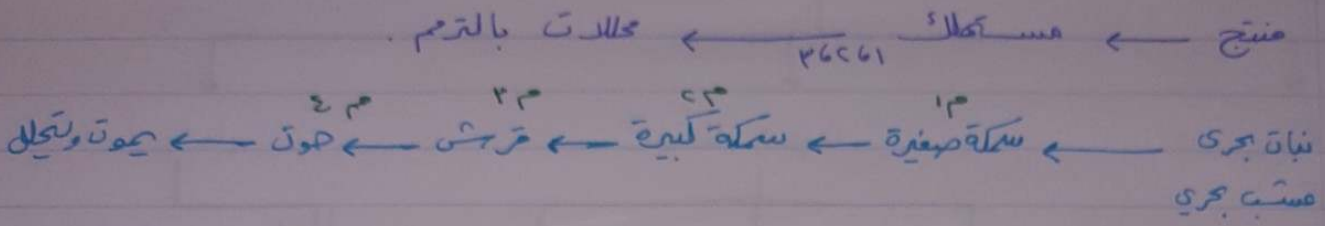 منتج ← مستهلك ١،٢،٣ ← محللات بالترمم .
م١ م٢ م٣ م٤
نبات بحرى ← سمكة صغيرة ← سمكة كبيرة ← قرش ← حوت ← يموت ويتحلل
عشب بحري